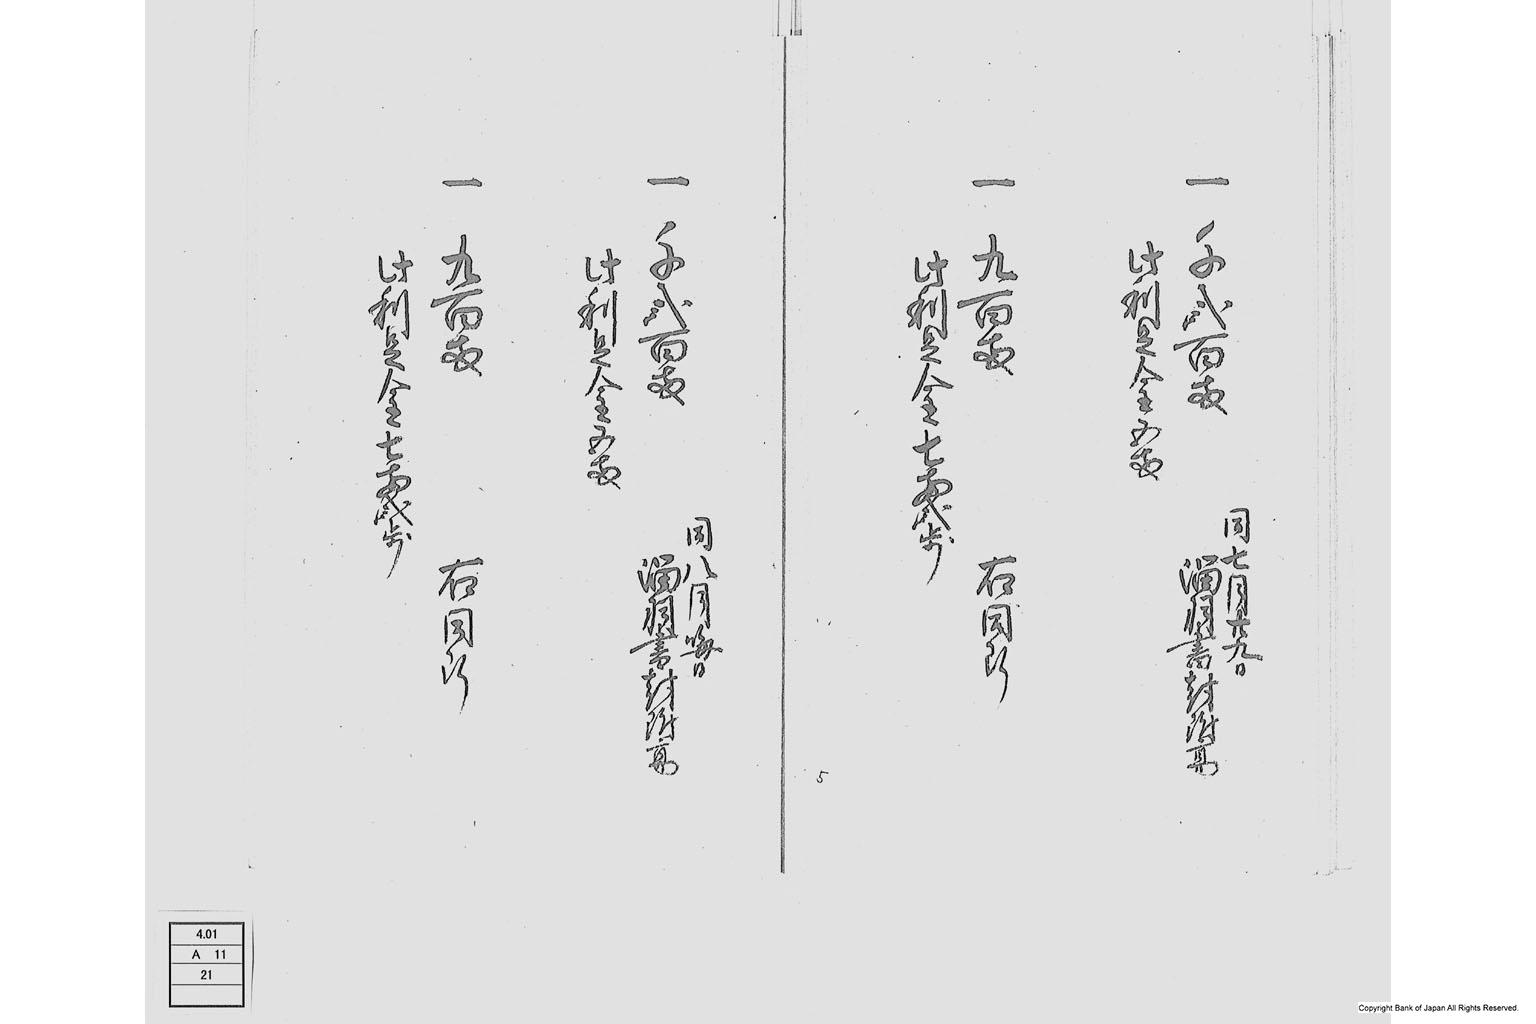 同七月廿九日
一 千弐百両 書封附高
此利足金五両
一 九百両 右同断
此利足金七両弐歩
5
同八月晦日
一 千弐百両 書封附高
此利足金五両
一 九百両 右同断
此利足金七両弐歩
4.01
A 11
21
Copyright Bank of Japan All Rights Reserved.